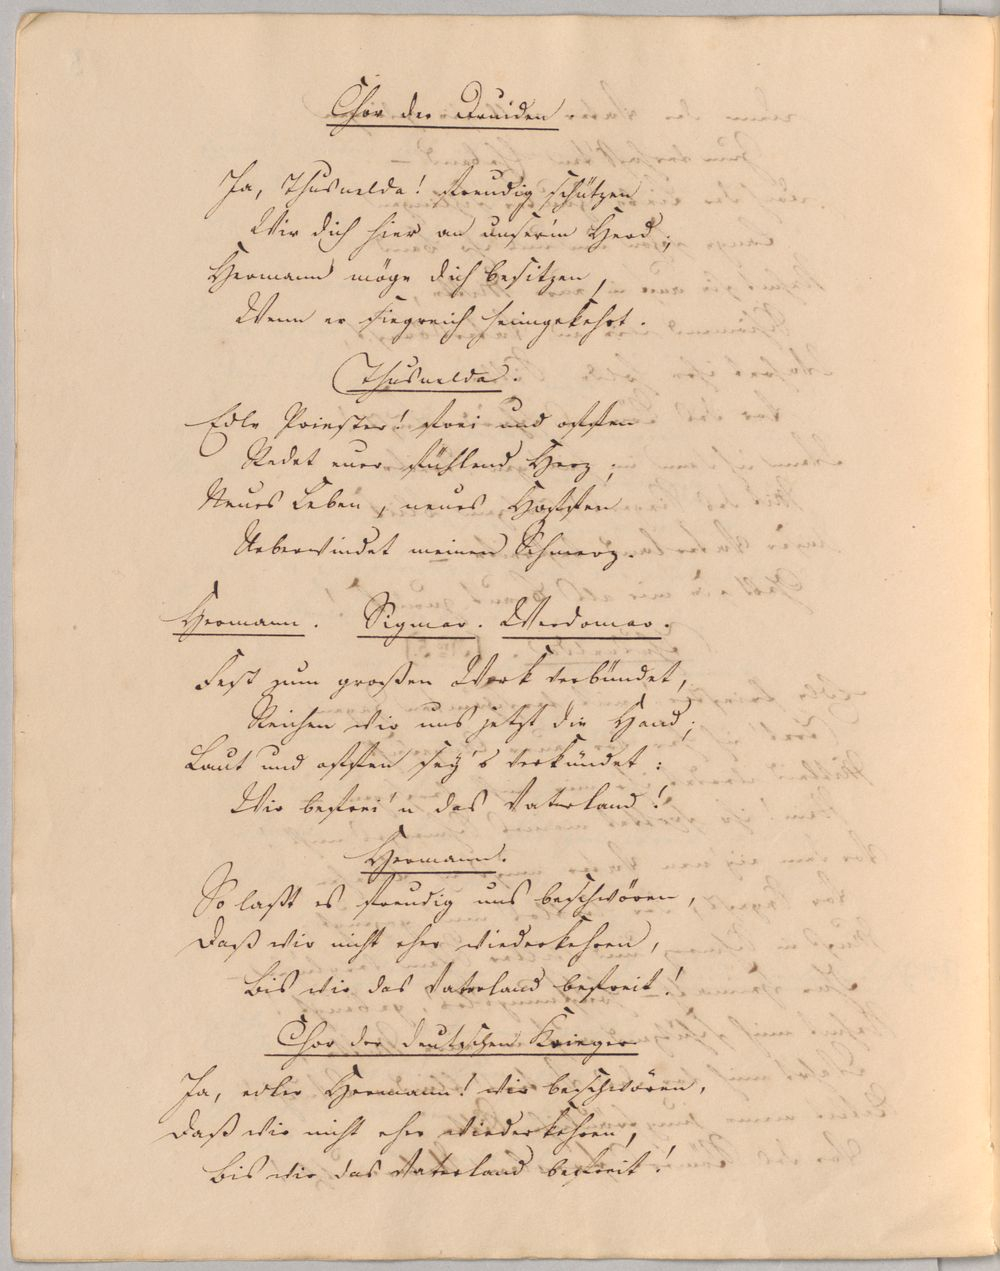 Chor der Druiden
Ja, Thusnelda! freudig schützen
Wir dich hier an unserm Herd;
Hermann möge dich besitzen,
Wenn er siegreich heimgekehrt.
Thusnelda.
Edle Priester! frei und offen
Redet euer fühlend Herz;
Neues Leben, neues Hoffen
Ueberwindet meinen Schmerz.
Hermann. Sigmar. Werdomar.
Fest zum großen Werk verbündet,
Reichen wir uns jetzt die Hand;
Laut und offen sey's verkündet:
Wir befrei'n das Vaterland!
Hermann.
So laßt es freudig uns beschwören,
Daß wir nicht eher wiederkehren,
Bis wir das Vaterland befreit!
Chor der deutschen Krieger
Ja, edler Hermann! wir beschwören,
Daß wir nicht eher wiederkehren,
Bis wir das Vaterland befreit!